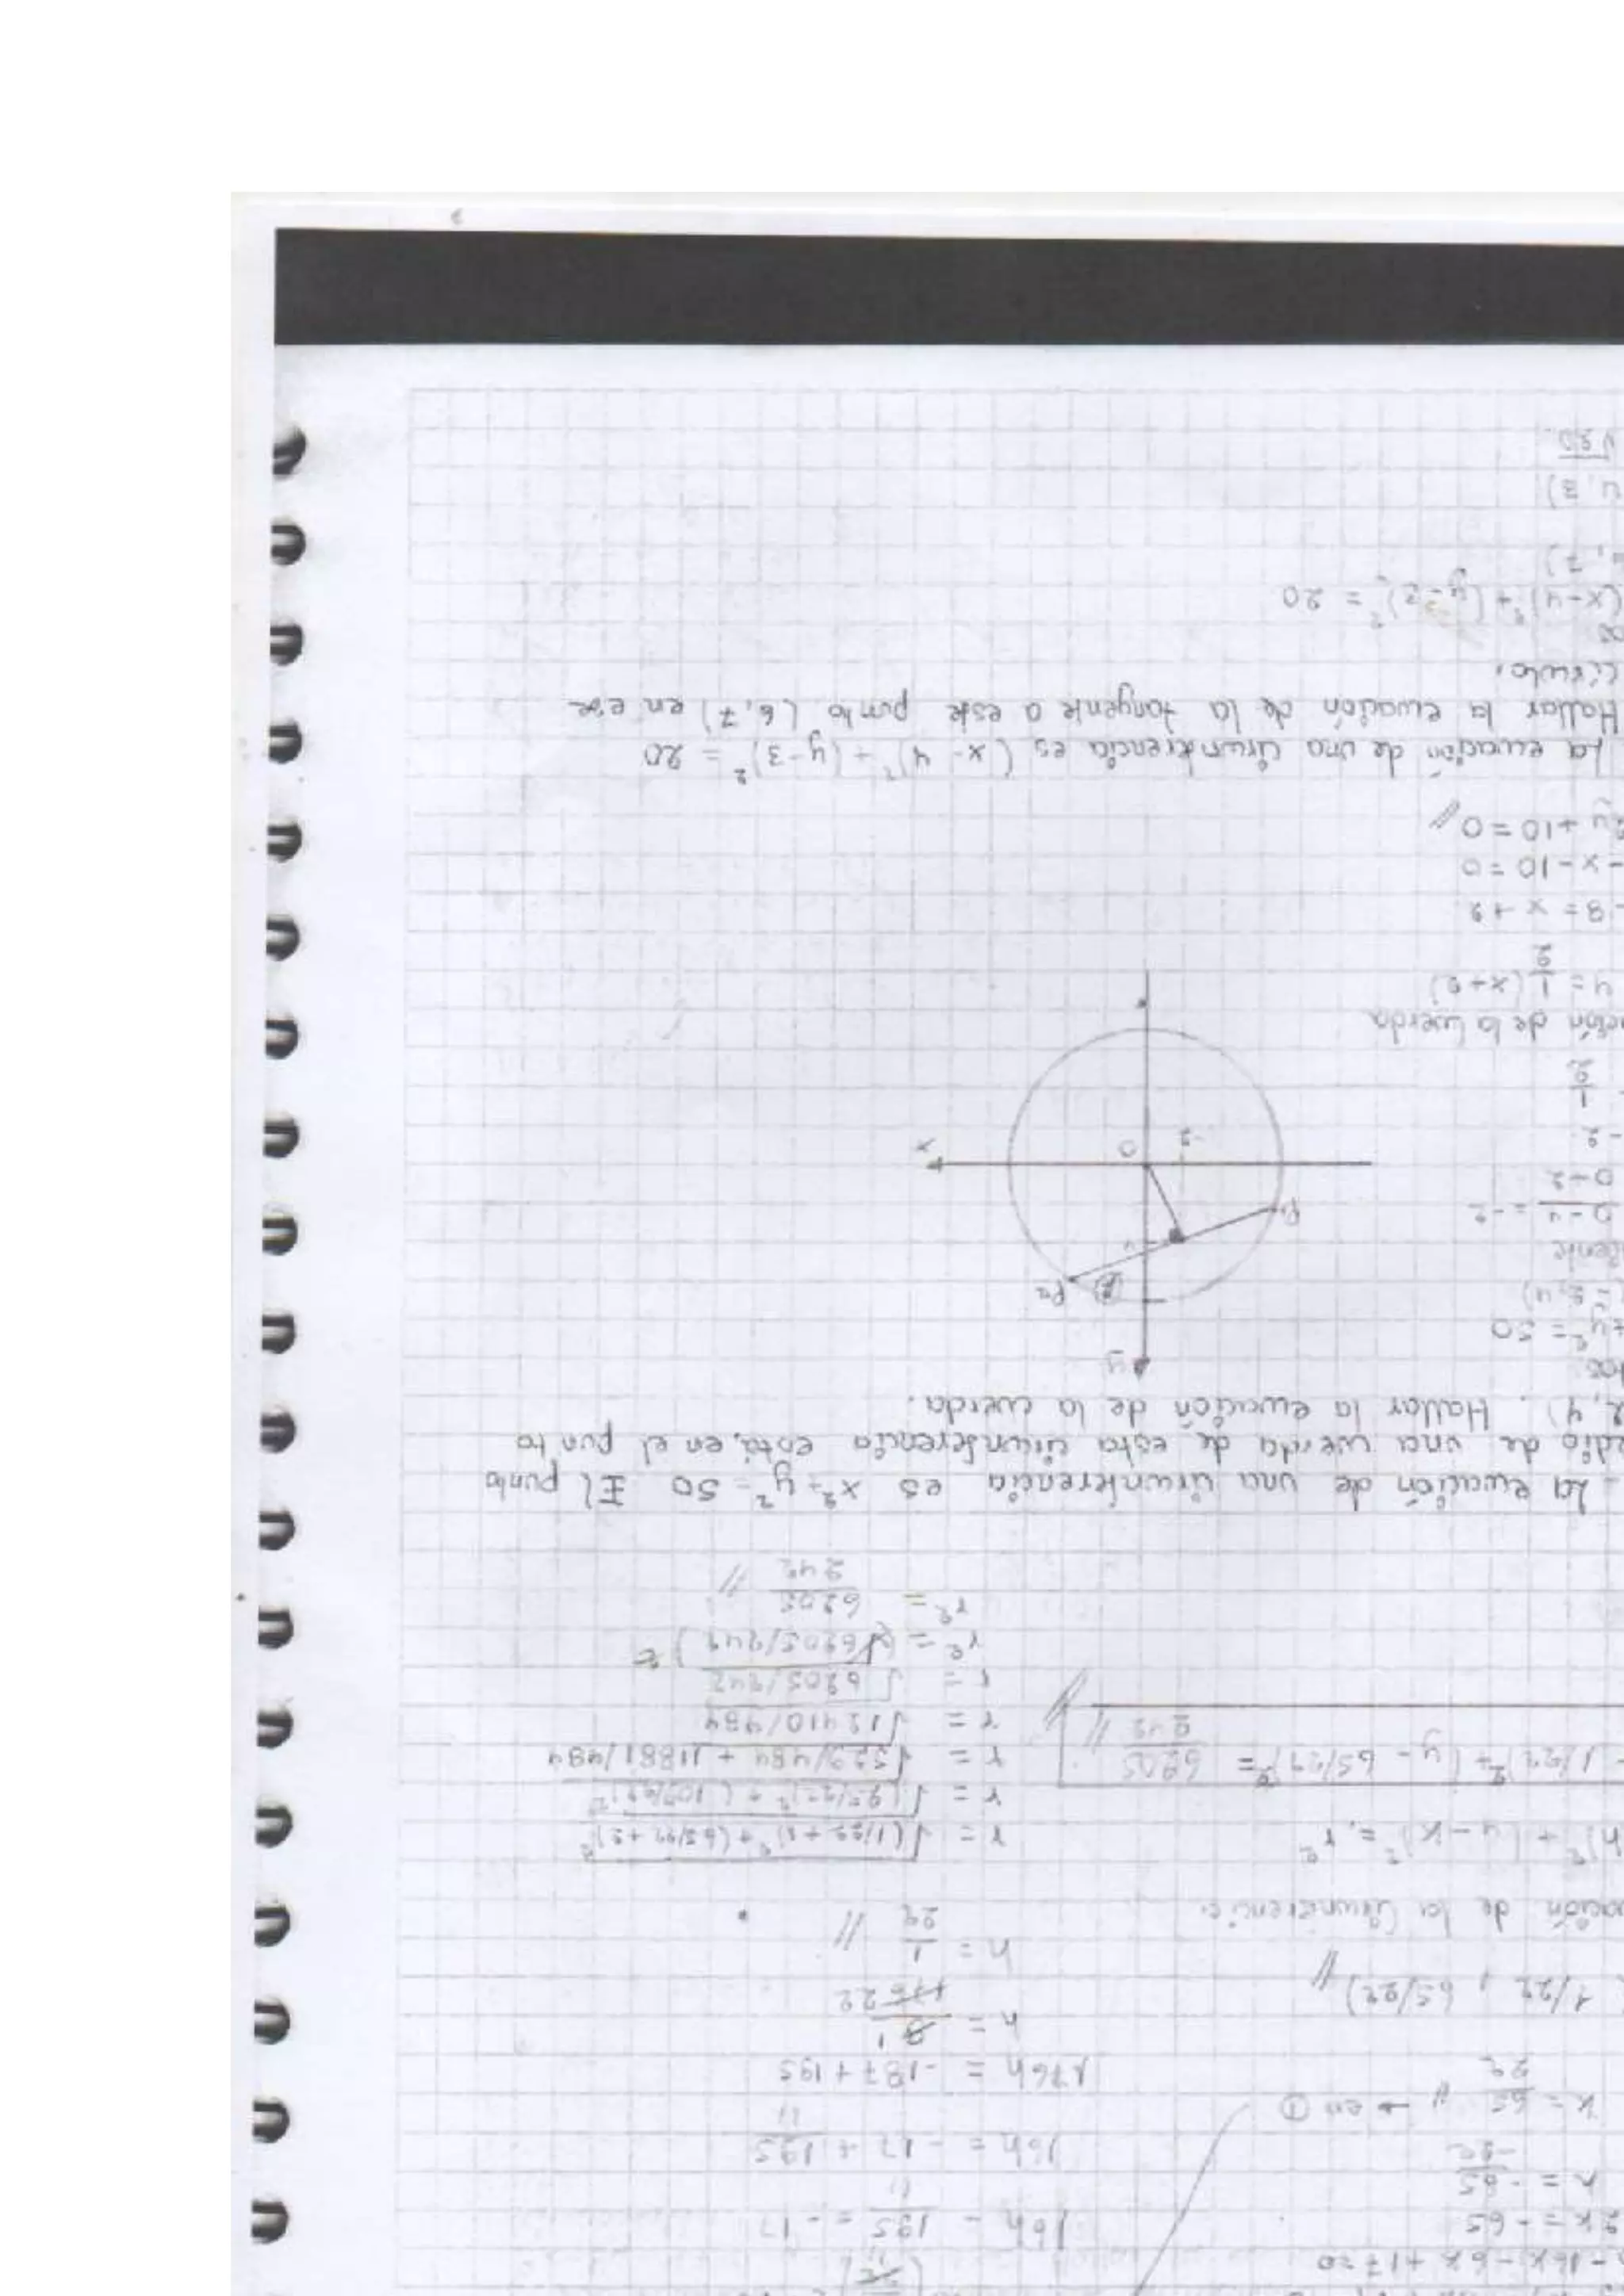 - 16k - 6k + 17 = 0
2k = - 65
k = -65 / -22
k = 65 / 22 // → en ①
1/22 , 65/22) //
16h - 195/11 = - 17
16h = - 17 + 195/11
176h = - 187 + 195
h = 1/22 //
ación de la Circunferencia.
h)² + (y - k)² = r²
- 1/22)² + (y - 65/22)² = 6205/242 //
r = √(1/22 + 1)² + (65/22 + 2)²
r = √(23/22)² + (109/22)²
r = √529/484 + 11881/484
r = √12410/484
r = √6205/242
r² = (√6205/242)²
r² = 6205/242 //
- La ecuación de una circunferencia es x² + y² = 50 El punto
edio de una cuerda de esta circunferencia está, en el punto
2, 4). Hallar la ecuación de la cuerda.
+ y² = 50
- 2, 4)
0 - 4 / 0 - 2 = -2
- 2
1/2
y
P2
P1
-2
0
x
ción de la cuerda
4 = 1/2 (x + 2)
- 8 = x + 2
- x - 10 = 0
2y + 10 = 0 //
La ecuación de una circunferencia es (x - 4)² + (y - 3)² = 20
Hallar la ecuación de la tangente a este punto (6, 7) en ese
círculo.
(x - 4)² + (y - 3)² = 20
, 7)
4, 3)
√20